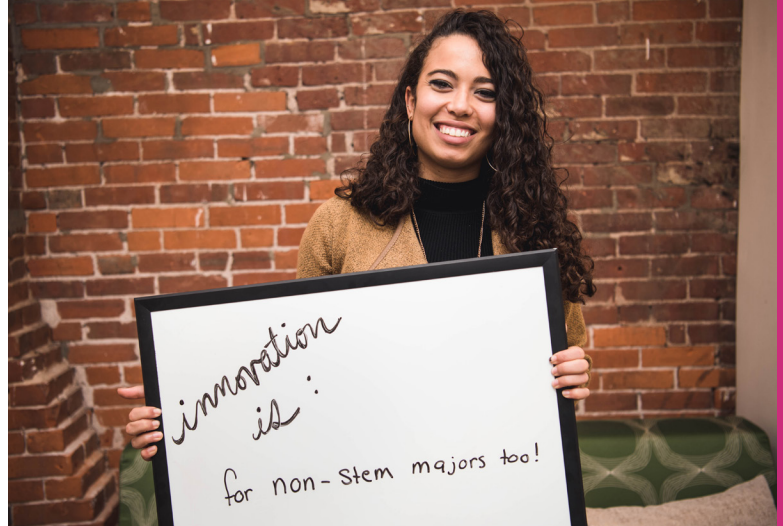 innovation
is:
for non-Stem majors too!